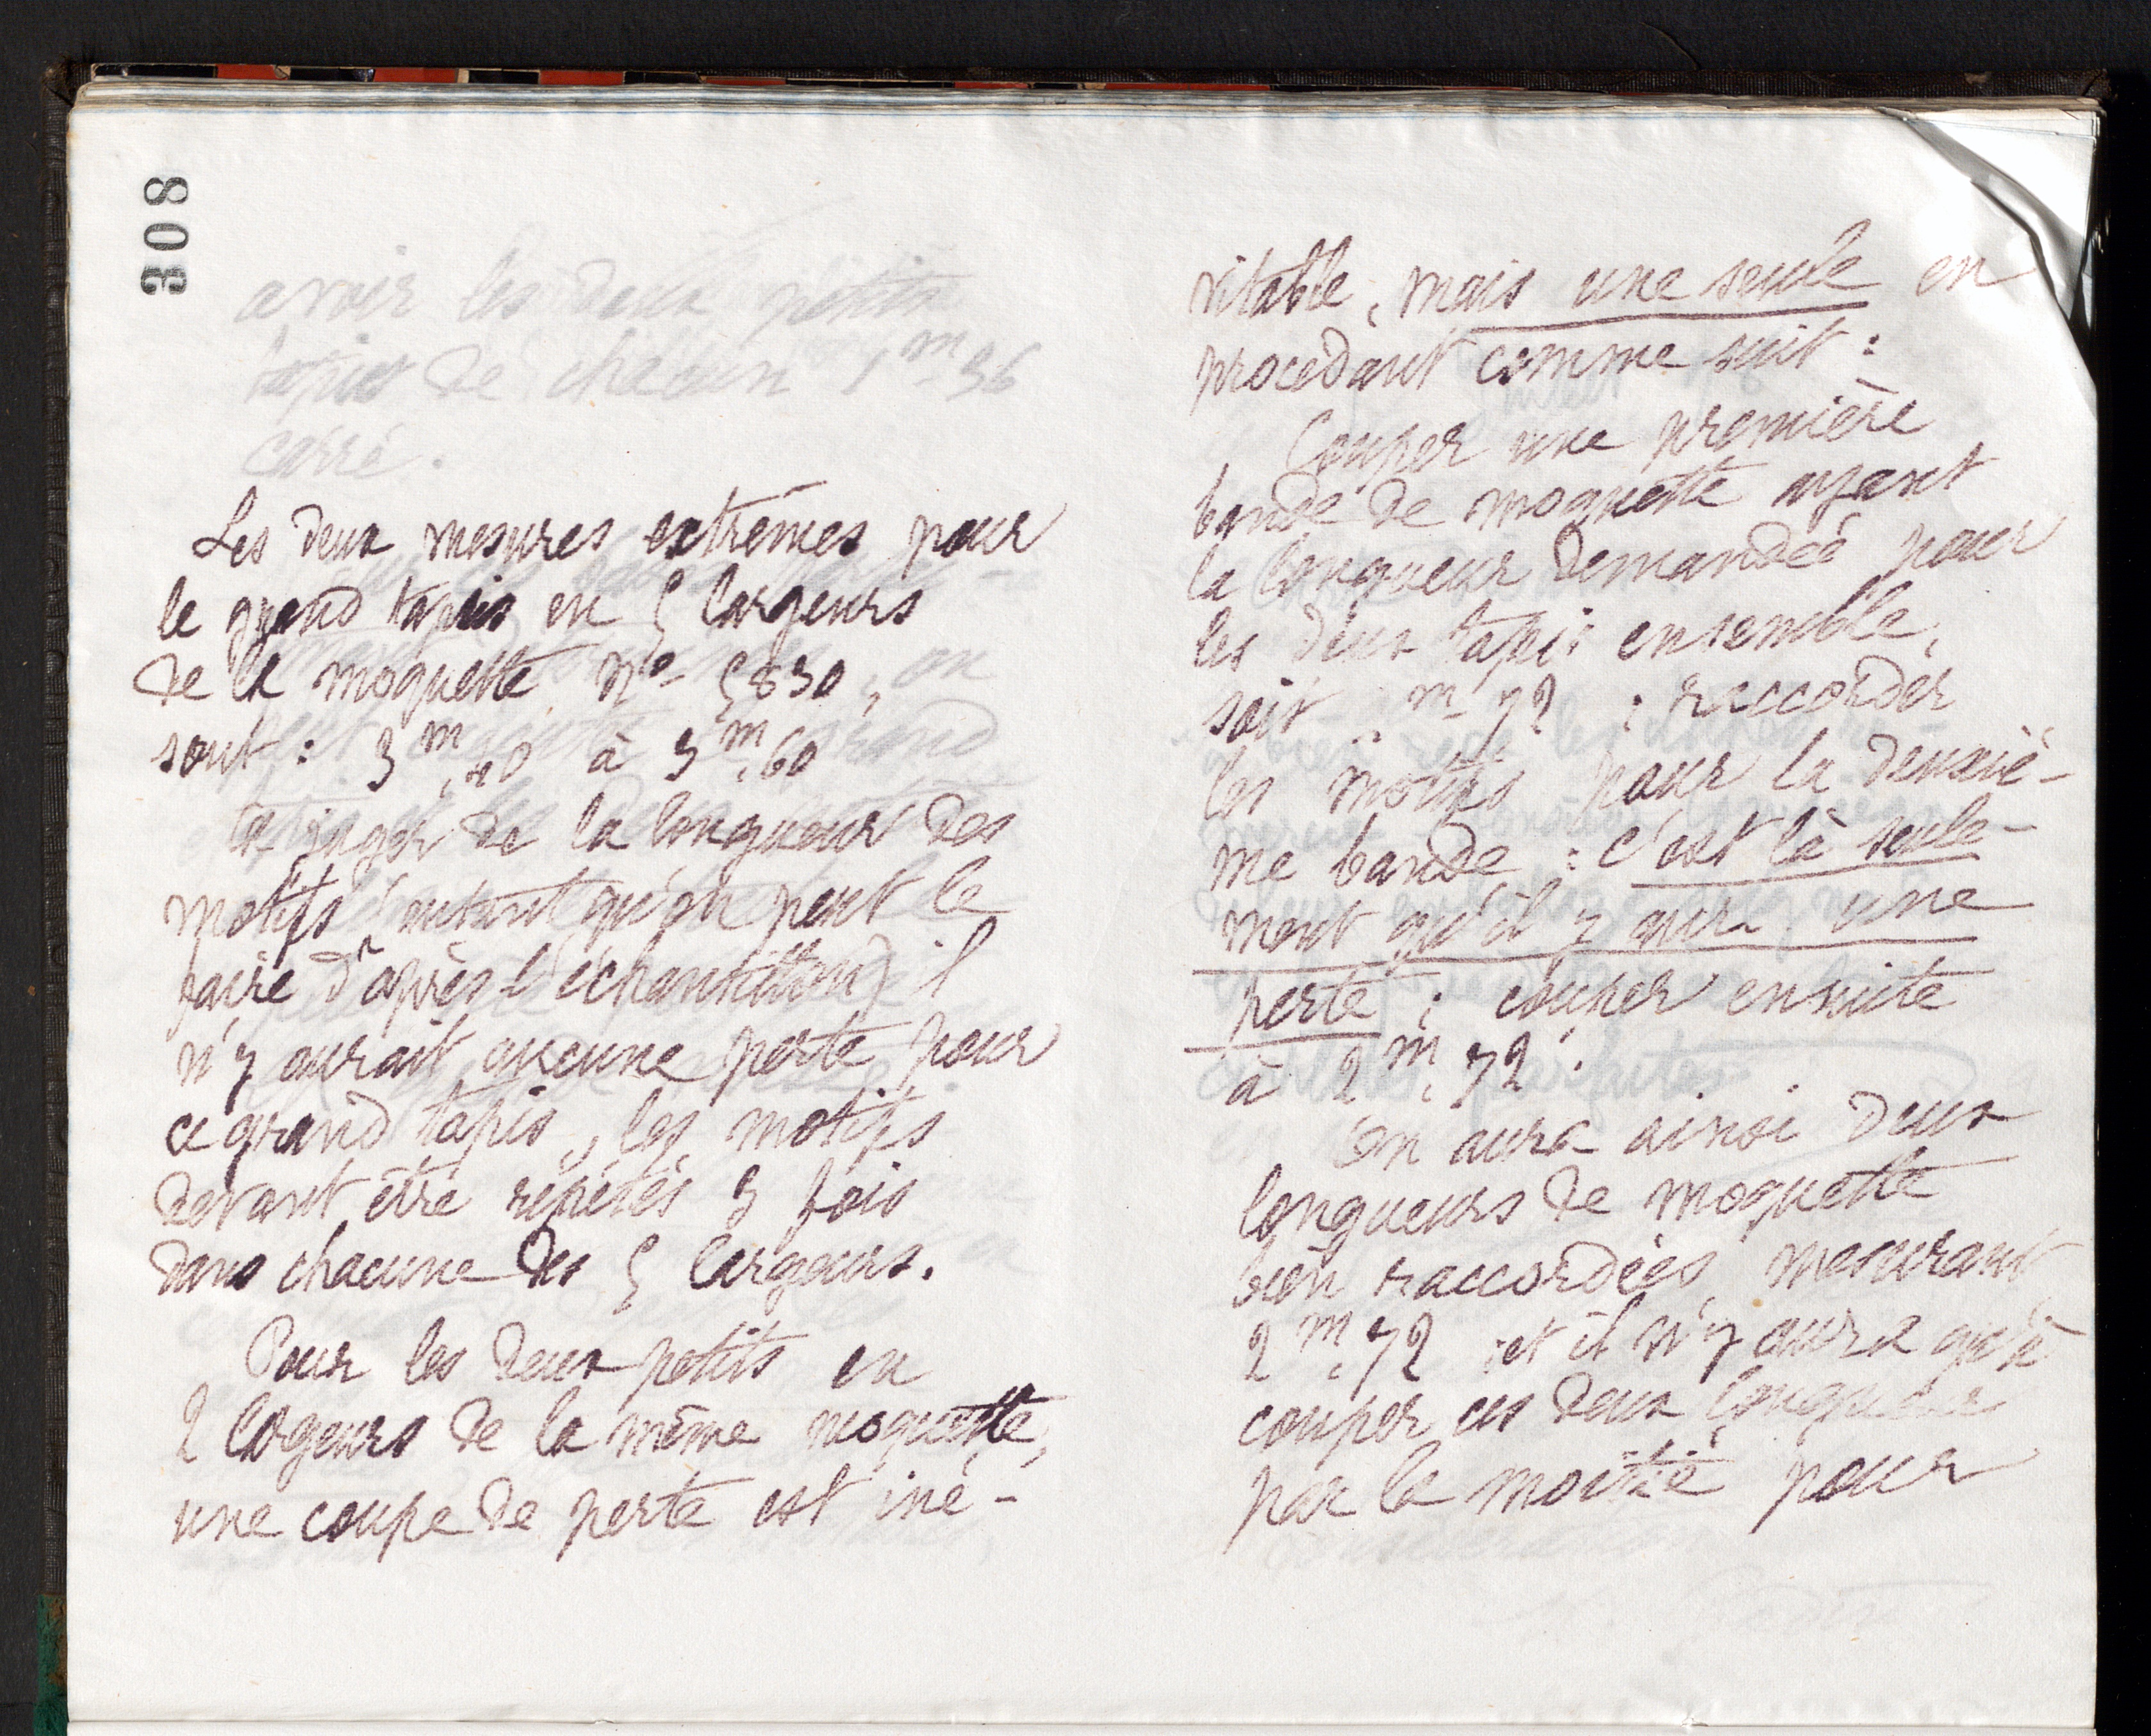 308
avoir les deux petits
tapis de chacun 1m36
carré.
Les deux mesures extrêmes pour
le grand tapis en 5 largeurs
de la moquette no 5830,
sont : 3m,40 à 3m,60
A juger de la longueur des
motifs (autant qu'on peut le
faire d'après l'échantillon) il
n'y aurait aucune perte pour
ce grand tapis, les motifs
devant être répétés 3 fois
dans chacune des 5 largeurs.
Pour les deux petits en
2 largeurs de la même moquette,
une coupe de perte est iné-
vitable, mais une seule en
procédant comme suit :
Couper une première
bande de moquette ayant
la longueur demandée pour
les deux tapis ensemble,
soit 2m72 : raccorder
les motifs pour la deuxiè-
me bande : c'est là seule-
ment qu'il y aura une
perte ; couper ensuite
à 2m,72.
On aura ainsi deux
longueurs de moquette
bien raccordées mesurant
2m,72 ; et il n'y aura qu'à
couper ces deux longueurs
par la moitié pour